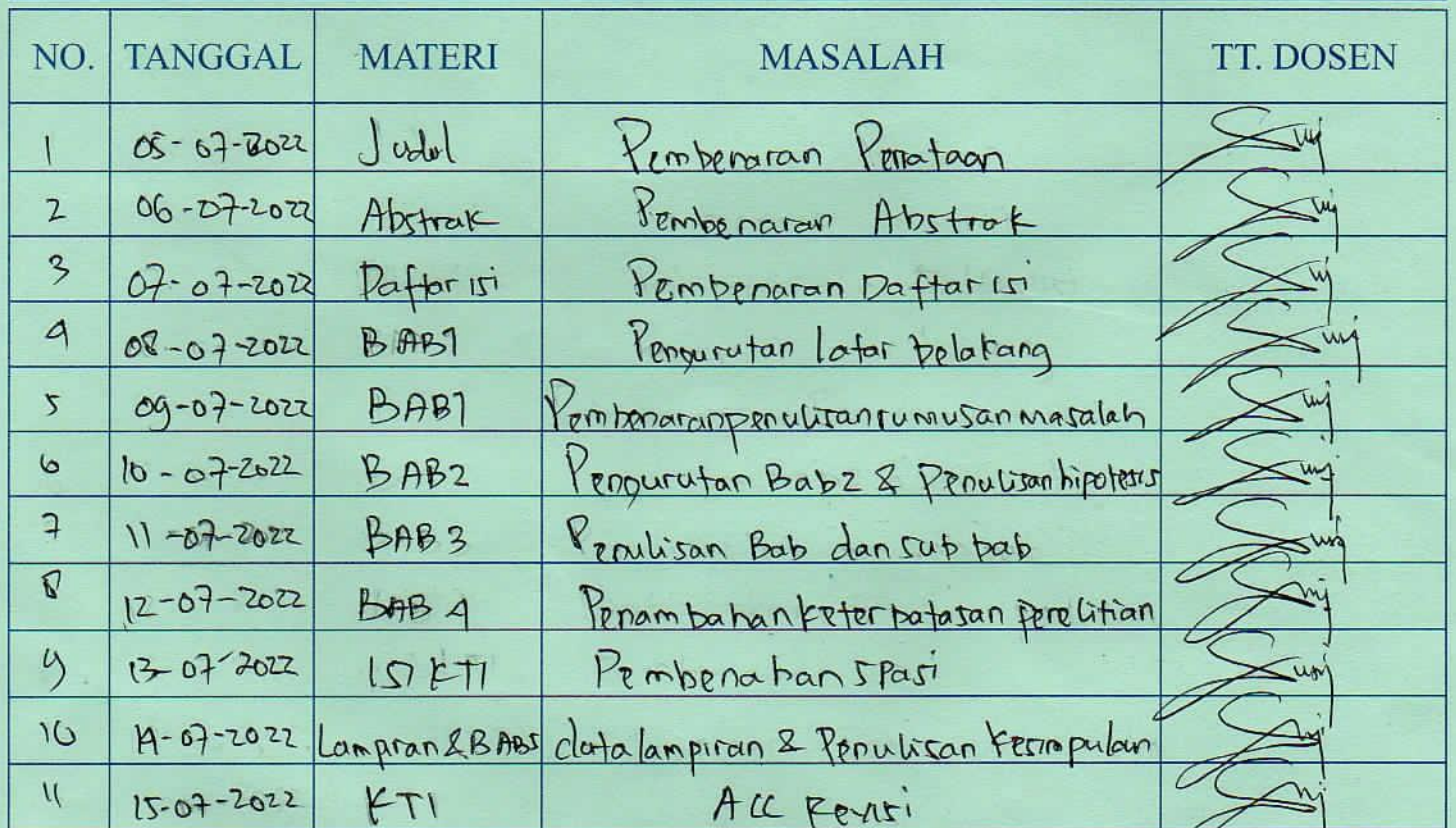 NO. TANGGAL MATERI MASALAH TT. DOSEN
1 05-07-2022 Judul Pembenaran Penataan
2 06-07-2022 Abstrak Pembenaran Abstrak
3 07-07-2022 Daftar isi Pembenaran Daftar isi
4 08-07-2022 BAB1 Pengurutan latar belakang
5 09-07-2022 BAB1 Pembenaran penulisan rumusan masalah
6 10-07-2022 BAB2 Pengurutan Bab2 & Penulisan hipotesis
7 11-07-2022 BAB 3 Penulisan Bab dan sub bab
8 12-07-2022 BAB 4 Penambahan keterbatasan penelitian
9 13-07-2022 ISI KTI Pembenahan spasi
10 14-07-2022 Lampran & BAB5 data lampiran & Penulisan kesimpulan
11 15-07-2022 KTI ACC Revisi